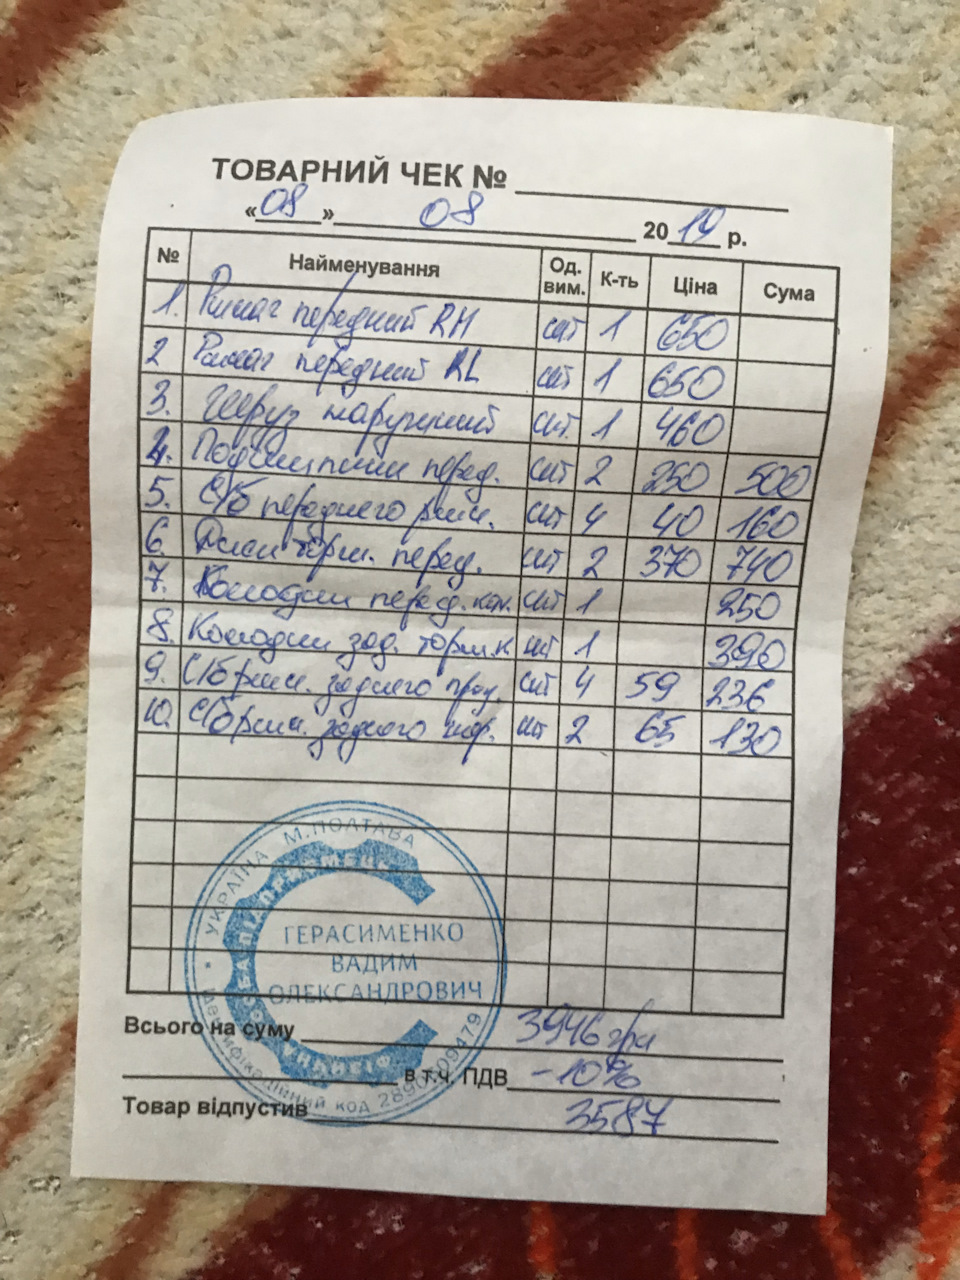 ТОВАРНИЙ ЧЕК №
«08» 08 2019 р.
№ Найменування Од. вим. К-ть Ціна Сума
1. Ричаг передний RH шт 1 650
2 Ричаг передний RL шт 1 650
3. Шруз наружний шт. 1 460
4. Подшипники перед. шт 2 250 500
5. С/б переднего рыч. шт 4 40 160
6. Диски торм. перед. шт 2 370 740
7. Колодки перед. кол. шт 1 250
8. Колодки зад. торм.к шт 1 390
9. С/б рыч. заднего шт 4 59 236
10. С/б рыч. заднего шт 2 65 130
УКРАЇНА М.ПОЛТАВА
ФІЗИЧНА ОСОБА-ПІДПРИЄМЕЦЬ
ГЕРАСИМЕНКО
ВАДИМ
ОЛЕКСАНДРОВИЧ
Ідентифікаційний код
Всього на суму 3946 грн
в т.ч. ПДВ -10%
Товар відпустив 3587